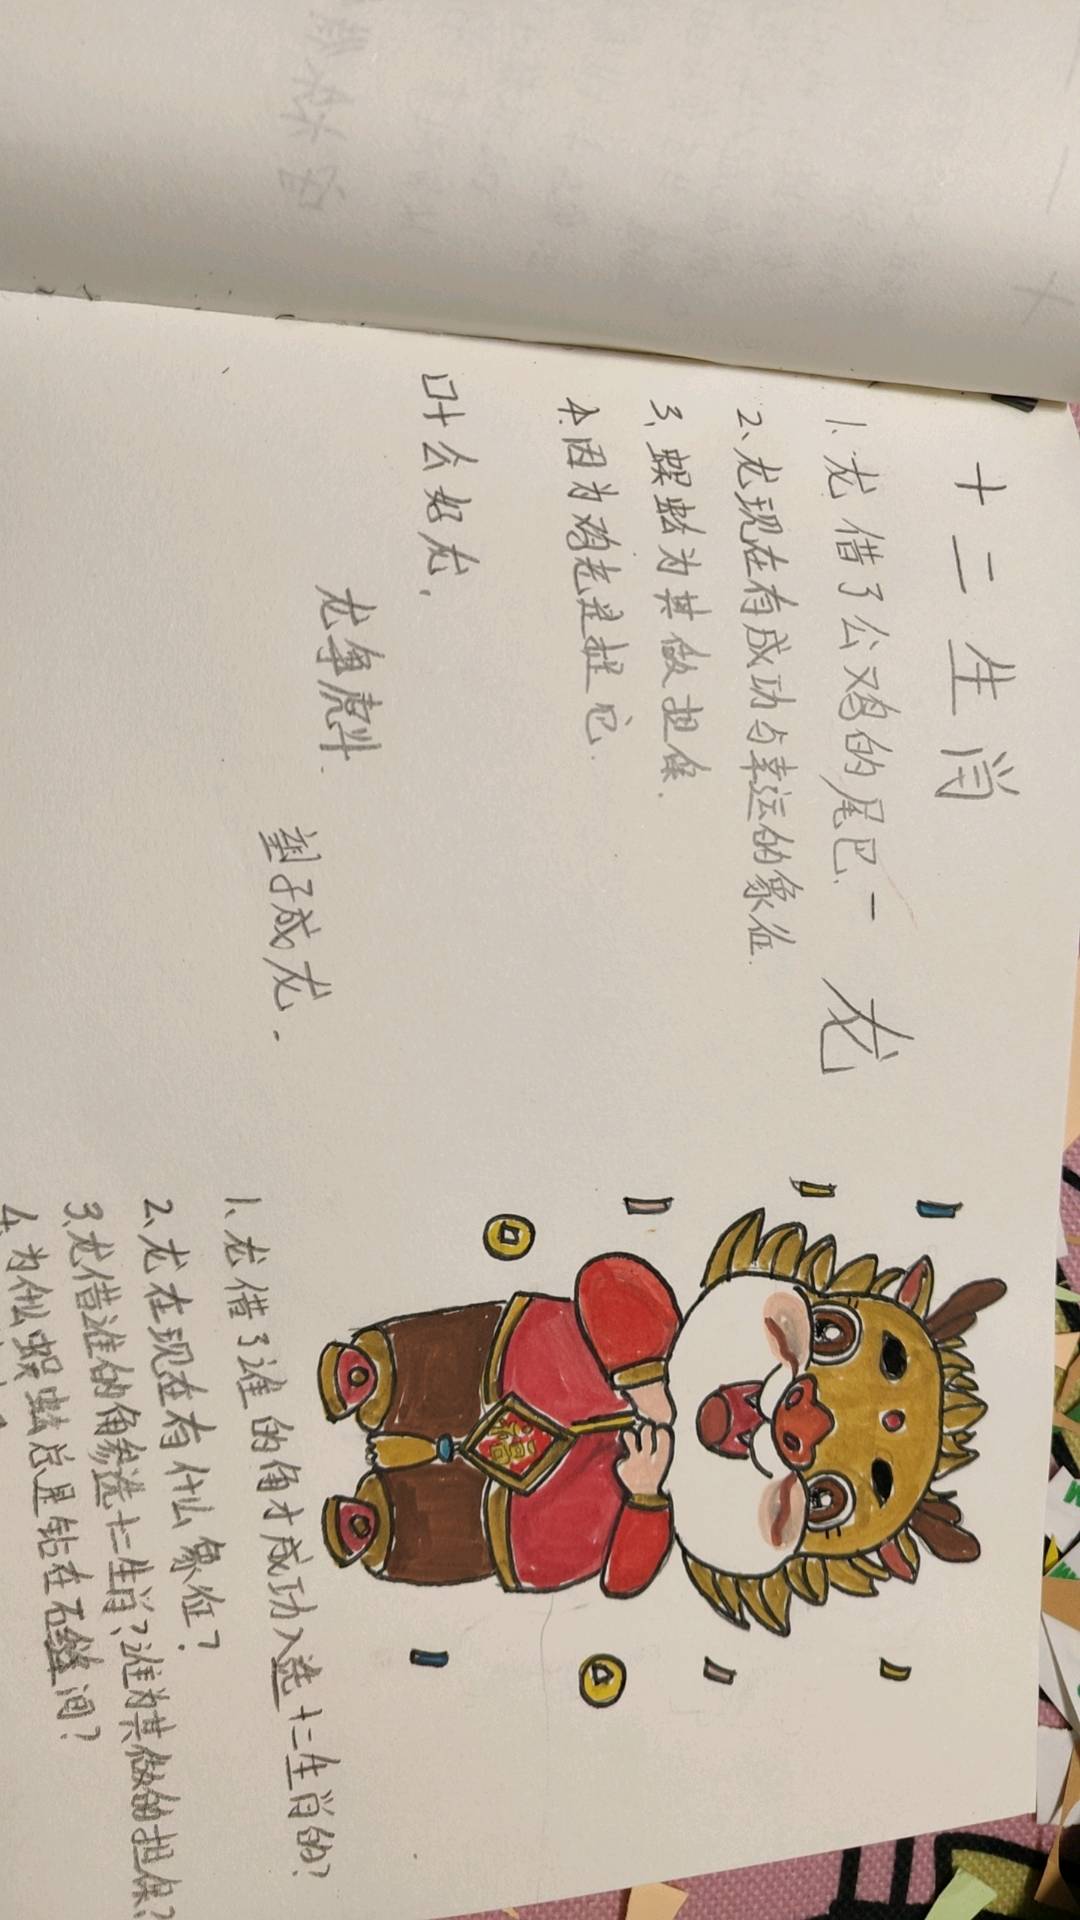 十二生肖
一 龙
1、龙借了公鸡的尾巴
2、龙现在有成功与幸运的象征.
3、蜈蚣为其做担保.
4、因为鸡老是捉它.
叶公好龙,
龙争虎斗.
望子成龙.
福
1、龙借了谁的角才成功入选十二生肖的?
2、龙在现在有什么象征?
3、龙借谁的角参选十二生肖?谁为其做的担保?
4、为什么蜈蚣总是钻在石缝间?